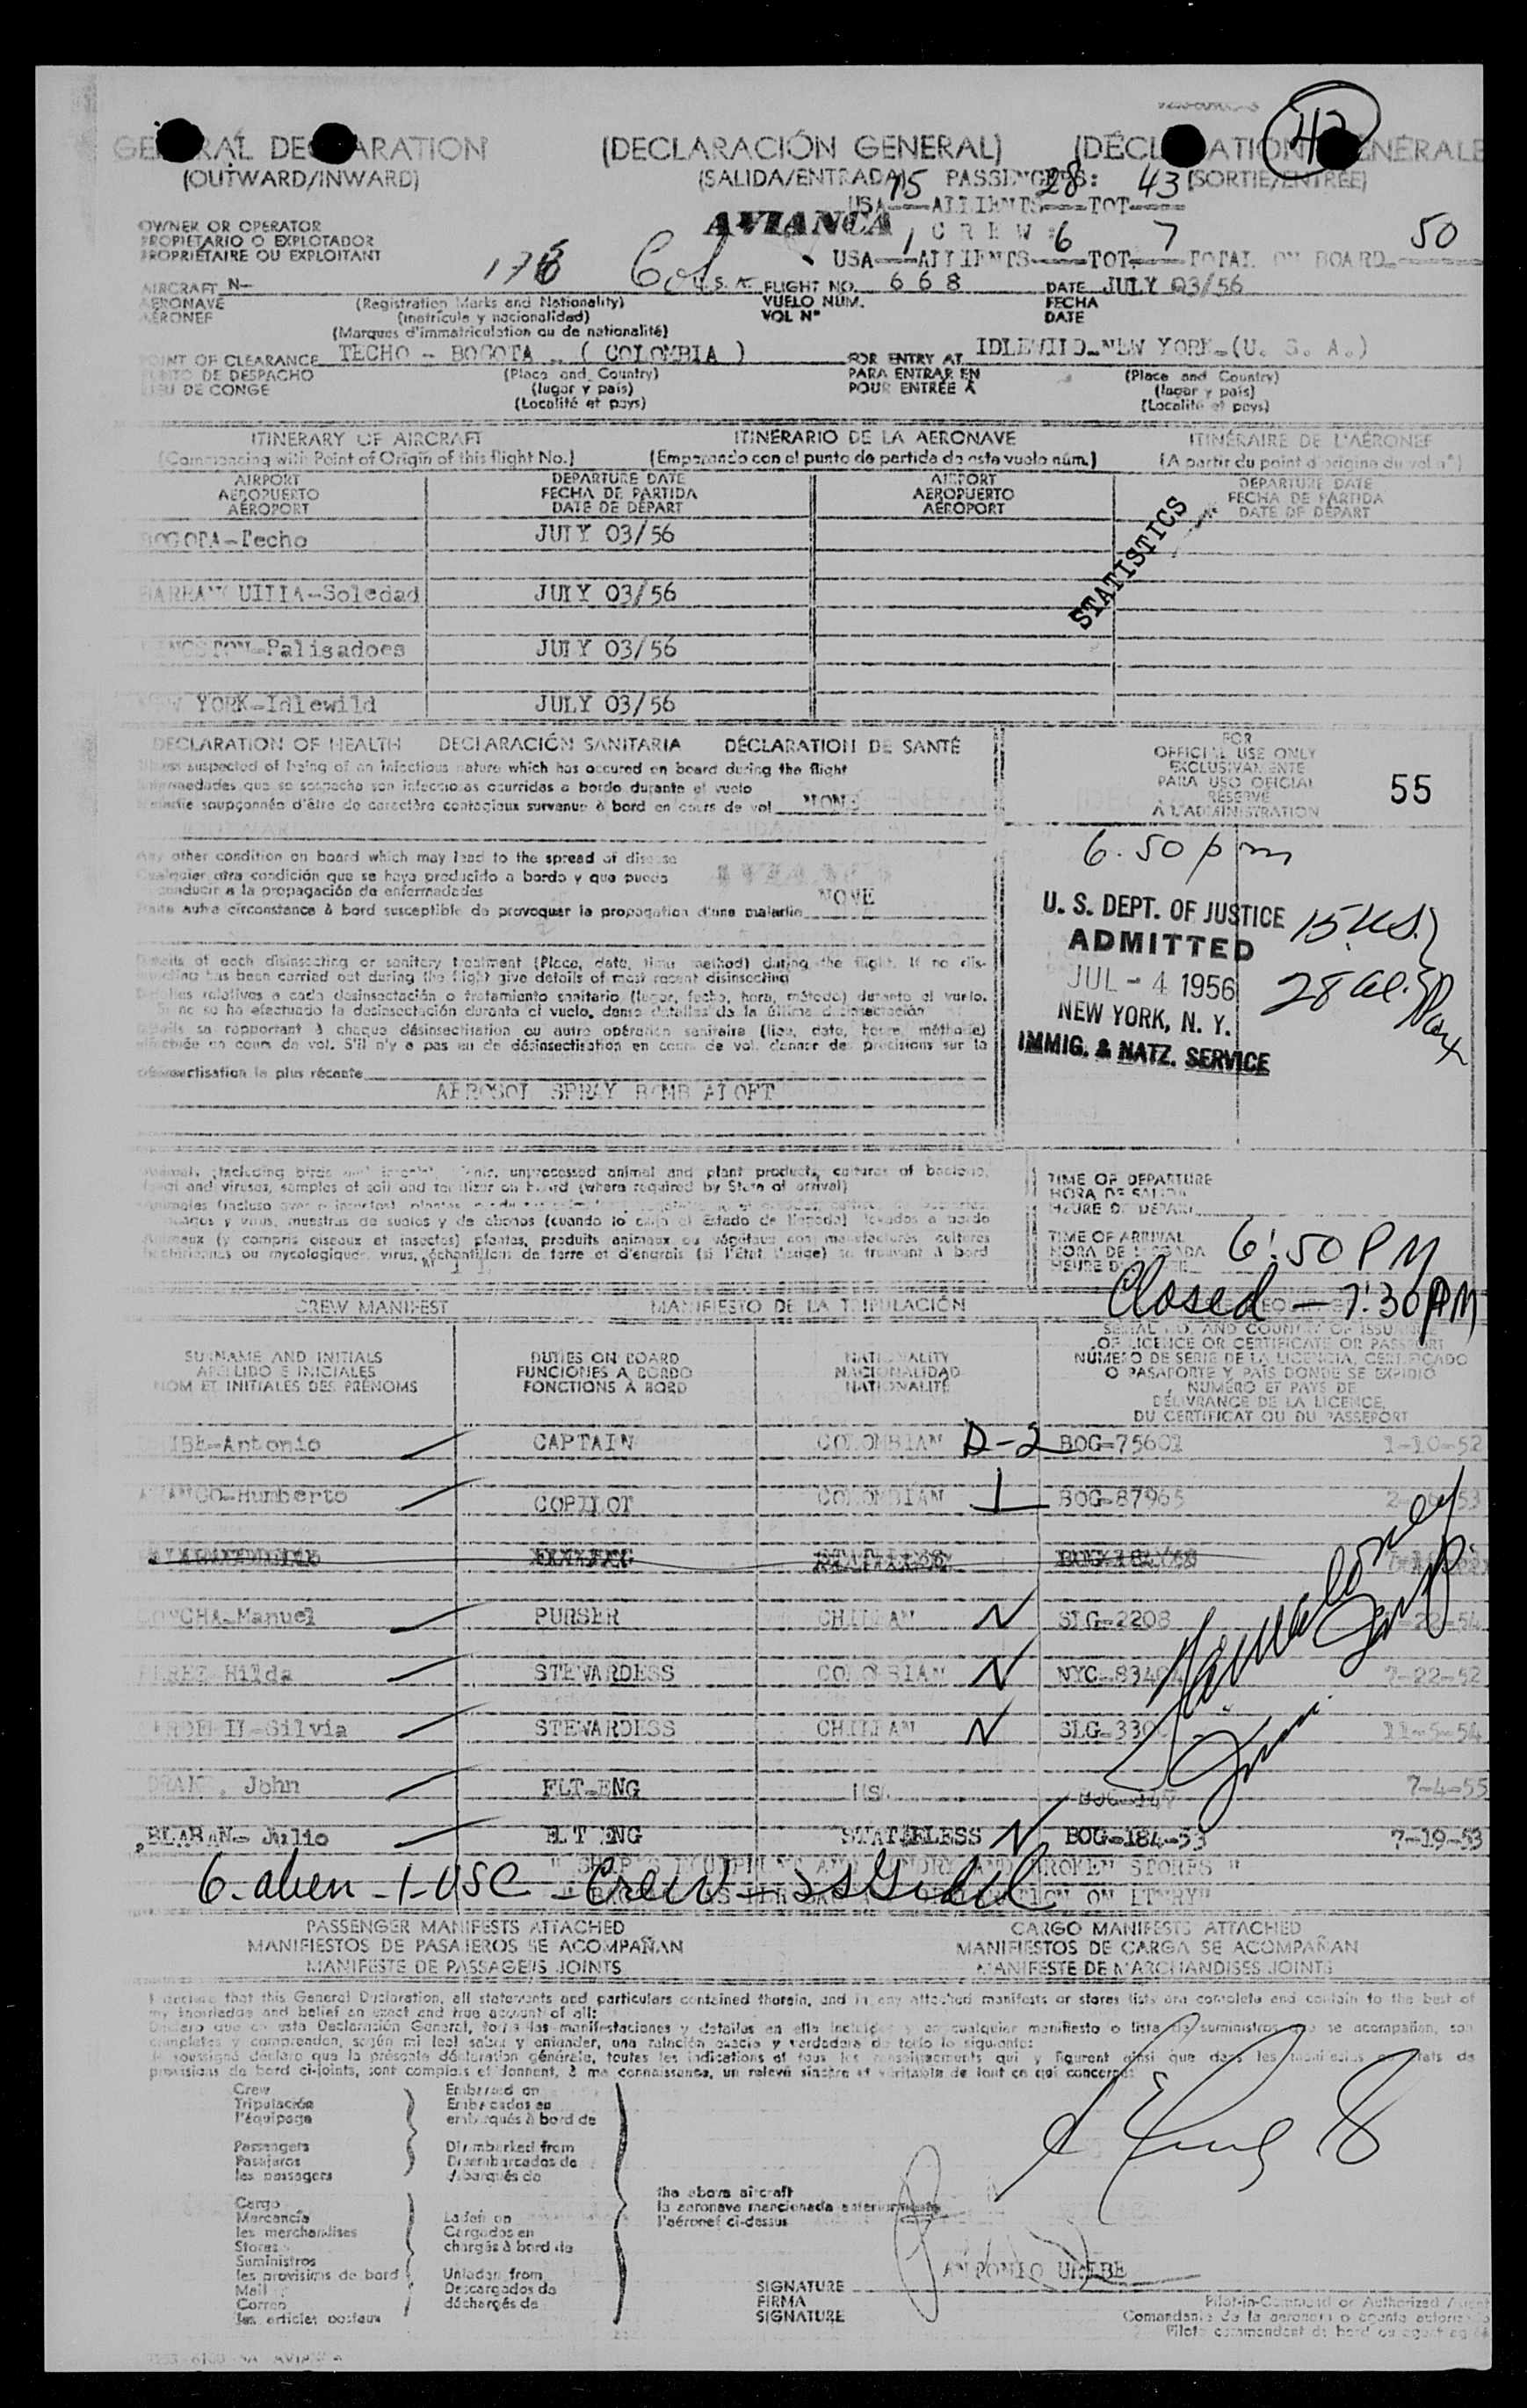 GENERAL DECLARATION (DECLARACIÓN GENERAL) (DÉCLARATION GÉNÉRALE
(OUTWARD/INWARD) (SALIDA/ENTRADA) (SORTIE/ENTRÉE)
42
PASSENGERS:
USA 15 ALLIENTS 28 TOT 43
AVIANCA CREW
USA 1 ALLIENTS 6 TOT. 7 TOTAL ON BOARD 50
OWNER OR OPERATOR
PROPIETARIO O EXPLOTADOR
PROPRIÉTAIRE OU EXPLOITANT
AIRCRAFT N- Col U.S.A. FLIGHT NO. 668 DATE JULY 03/56
AERONAVE (Registration Marks and Nationality) VUELO NÚM. FECHA
AÉRONEF (matrícula y nacionalidad) VOL Nº DATE
(Marques d'immatriculation ou de nationalité)
POINT OF CLEARANCE TECHO - BOGOTA - ( COLOMBIA ) FOR ENTRY AT IDLEWILD-NEW YORK-(U. S. A.)
PUNTO DE DESPACHO (Place and Country) PARA ENTRAR EN (Place and Country)
LIEU DE CONGE (lugar y país) POUR ENTRÉE A (lugar y país)
(Localité et pays) (Localité et pays)
ITINERARY OF AIRCRAFT ITINERARIO DE LA AERONAVE ITINÉRAIRE DE L'AÉRONEF
(Commencing with Point of Origin of this flight No.) (Empezando con el punto de partida de este vuelo núm.) (A partir du point d'origine du vol nº)
AIRPORT DEPARTURE DATE AIRPORT DEPARTURE DATE
AEROPUERTO FECHA DE PARTIDA AEROPUERTO FECHA DE PARTIDA
AÉROPORT DATE DE DÉPART AÉROPORT DATE DE DÉPART
BOGOTA-Techo JULY 03/56
STATISTICS
BARRANQUILLA-Soledad JULY 03/56
KINGSTON-Palisadoes JULY 03/56
NEW YORK-Idlewild JULY 03/56
DECLARATION OF HEALTH DECLARACIÓN SANITARIA DÉCLARATION DE SANTÉ
Illness suspected of being of an infectious nature which has occured on board during the flight
Enfermedades que se sospecha son infecciosas ocurridas a bordo durante el vuelo
Maladie soupçonnée d'être de caractère contagieux survenue à bord en cours de vol NONE
FOR
OFFICIAL USE ONLY
EXCLUSIVAMENTE
PARA USO OFICIAL
RÉSERVÉ
A L'ADMINISTRATION
55
Any other condition on board which may lead to the spread of disease
Cualquier otra condición que se haya producido a bordo y que pueda
conducir a la propagación de enfermedades
Toute autre circonstance à bord susceptible de provoquer la propagation d'une maladie NONE
6.50 pm
U. S. DEPT. OF JUSTICE
ADMITTED
JUL - 4 1956
NEW YORK, N. Y.
IMMIG. & NATZ. SERVICE
15 US.
28 al.
Pax
Details of each disinsecting or sanitary treatment (Place, date, time method) during the flight. If no dis-
insecting has been carried out during the flight give details of most recent disinsecting
Detalles relativos a cada desinsectación o tratamiento sanitario (lugar, fecha, hora, método) durante el vuelo.
Si no se ha efectuado la desinsectación durante el vuelo, dense detalles de la última desinsectación
Détails se rapportant à chaque désinsectisation ou autre opération sanitaire (lieu, date, heure, méthode)
effectuée en cours de vol. S'il n'y a pas eu de désinsectisation en cours de vol, donner des précisions sur la
désinsectisation la plus récente
AEROSOL SPRAY BOMB ALOFT
Animals, (including birds and insects), plants, unprocessed animal and plant products, cultures of bacteria,
fungi and viruses, samples of soil and fertilizer on board (where required by State of arrival)
hongos y virus, muestras de suelos y de abonos (cuando lo exija el Estado de llegada) llevados a bordo
Animaux (y compris oiseaux et insectes) plantes, produits animaux ou végétaux non manufacturés, cultures
bactériennes ou mycologiques, virus, échantillons de terre et d'engrais (si l'État l'exige) se trouvant à bord
TIME OF DEPARTURE
HORA DE SALIDA
HEURE DE DÉPART
TIME OF ARRIVAL
HORA DE LLEGADA 6:50 PM
Closed - 7:30 PM
CREW MANIFEST MANIFIESTO DE LA TRIPULACIÓN
SURNAME AND INITIALS DUTIES ON BOARD NATIONALITY SERIAL NO. AND COUNTRY OF ISSUANCE
APELLIDO E INICIALES FUNCIONES A BORDO NACIONALIDAD OF LICENCE OR CERTIFICATE OR PASSPORT
NOM ET INITIALES DES PRÉNOMS FONCTIONS À BORD NATIONALITÉ NÚMERO DE SERIE DE LA LICENCIA, CERTIFICADO
O PASAPORTE Y PAÍS DONDE SE EXPIDIÓ
NUMÉRO ET PAYS DE
DÉLIVRANCE DE LA LICENCE,
DU CERTIFICAT OU DU PASSEPORT
URIBE-Antonio CAPTAIN COLOMBIAN D-2 BOG-75601 1-10-52
Humberto COPILOT COLOMBIAN BOG-87965
CONCHA-Manuel PURSER CHILEAN SLG-2208
PEREZ-Hilda STEWARDESS COLOMBIAN NYC- 7-22-52
Silvia STEWARDESS CHILEAN 11-5-54
John FLT-ENG USA 7-4-55
BLABAN- Julio FLT ENG STATELESS BOG-184-53 7-19-53
6-alien-1-USC Crew
PASSENGER MANIFESTS ATTACHED CARGO MANIFESTS ATTACHED
MANIFIESTOS DE PASAJEROS SE ACOMPAÑAN MANIFIESTOS DE CARGA SE ACOMPAÑAN
MANIFESTE DE PASSAGERS JOINTS MANIFESTE DE MARCHANDISES JOINTS
I declare that this General Declaration, all statements and particulars contained therein, and in any attached manifests or stores lists are complete and contain to the best of
my knowledge and belief an exact and true account of all:
Declaro que en esta Declaración General, todas las manifestaciones y detalles en ella incluidos y en cualquier manifiesto o lista de suministros que se acompañan, son
completos y comprenden, según mi leal saber y entender, una relación exacta y verdadera de todo lo siguiente:
Je soussigné déclare que la présente déclaration générale, toutes les indications et tous les renseignements qui y figurent ainsi que dans les manifestes ou états de
provisions de bord ci-joints, sont complets et donnent, à ma connaissance, un relevé sincère et véritable de tout ce qui concerne:
Crew Embarked on
Tripulación Embarcados en
l'équipage embarqués à bord de
Passengers Disembarked from
Pasajeros Desembarcados de
les passagers débarqués de
the above aircraft
la aeronave mencionada anteriormente
l'aéronef ci-dessus
Cargo
Mercancía Laden on
les merchandises Cargados en
Stores chargés à bord de
Suministros
les provisions de bord Unladen from
Mail Descargados de
Correo déchargés de
les articles postaux
ANTONIO URIBE
SIGNATURE
FIRMA
SIGNATURE
Pilot-in-Command or Authorized Agent
Comandante de la aeronave o agente autorizado